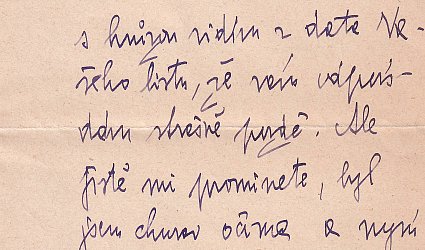 s hrůzou vidím z data Va-
šeho listu, že vám odpoví-
dám strašně pozdě. Ale
jistě mi prominete, byl
jsem churav očima a nyní